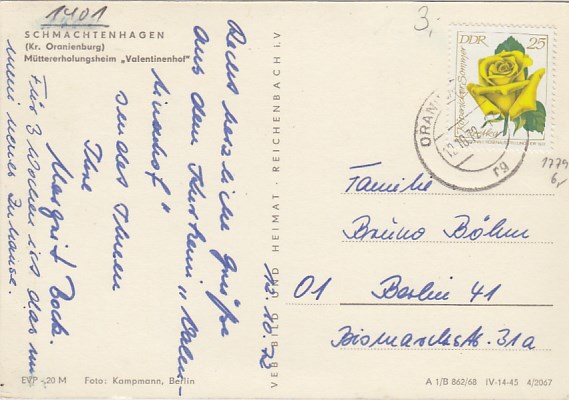 1401
SCHMACHTENHAGEN
(Kr. Oranienburg)
Müttererholungsheim „Valentinenhof"
12.10.72
Recht herzliche Grüße
aus dem Kurheim „Valen-
tinenhof"
sendet Ihnen
Ihre
Margrit Bock.
Für 3 Wochen ist das nun
mein neues Zuhause.
VEB BILD UND HEIMAT · REICHENBACH I.V
EVP -20 M Foto: Kampmann, Berlin
3,-
DDR 25
ORAN
rg
12.10.72
1779
6,-
Familie
Bruno Böhm
01 Berlin 41
Bismarckstr. 31a
A 1/B 862/68 IV-14-45 4/2067